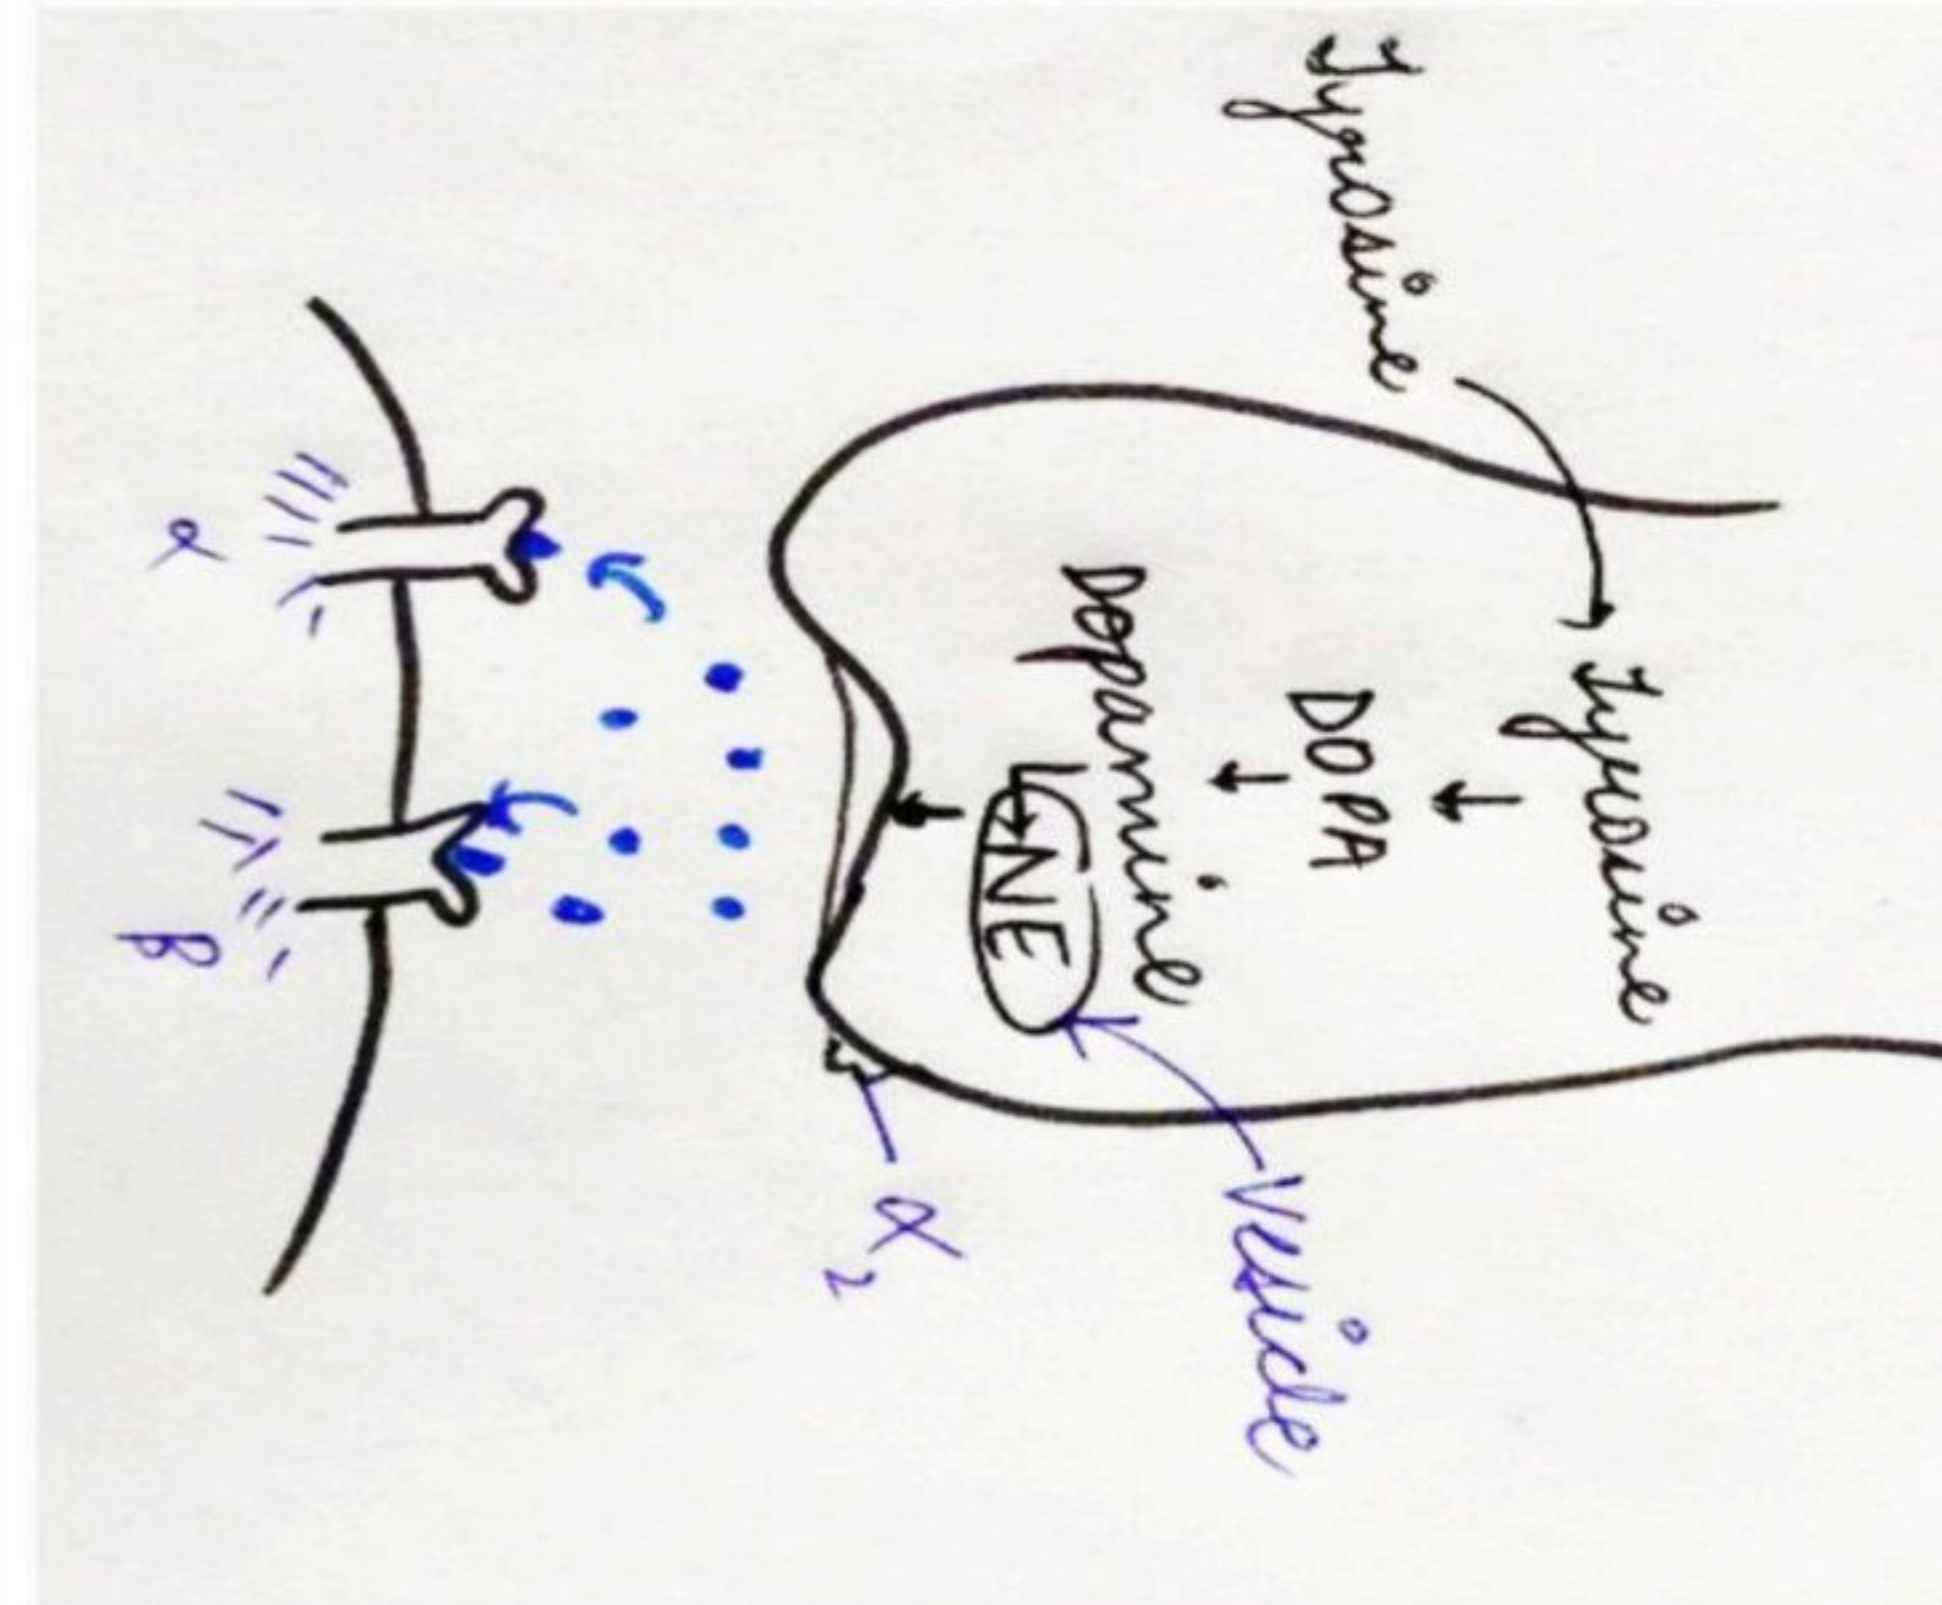 Tyrosine
Tyrosine
DOPA
Dopamine
NE
Vesicle
α₂
α
β